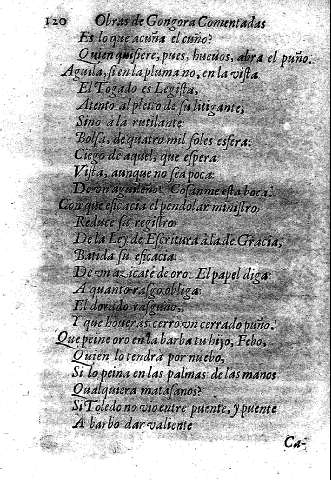 120 Obras de Gongora Comentadas
Es lo que acuña el cuño?
Quien quisiere, pues, huevos, abra el puño.
Aguila, si en la pluma no, en la vista
El Togado es Legista,
Atento al pleito de su litigante,
Sino à la rutilante
Bolsa, de quatro mil soles esfera:
Ciego de aquel, que espera
Vista, aunque no sea poca:
De un Cosanme esta boca:
Con que eficacia el pendolar ministro,
Reduce su registro
De la Ley de Escritura à la de Gracia,
Batida su eficacia
De un azicate de oro. El papel diga
A quanto rasgo obliga
El dorado rasguño,
Y que houeras cerro un cerrado puño.
Que peine oro en la barba tu hijo, Febo,
Quien lo tendra por nuebo,
Si lo peina en las palmas de las manos
Qualquiera matasanos?
Si Toledo no vio entre puente, y puente
A barbo dar valiente
Ca-